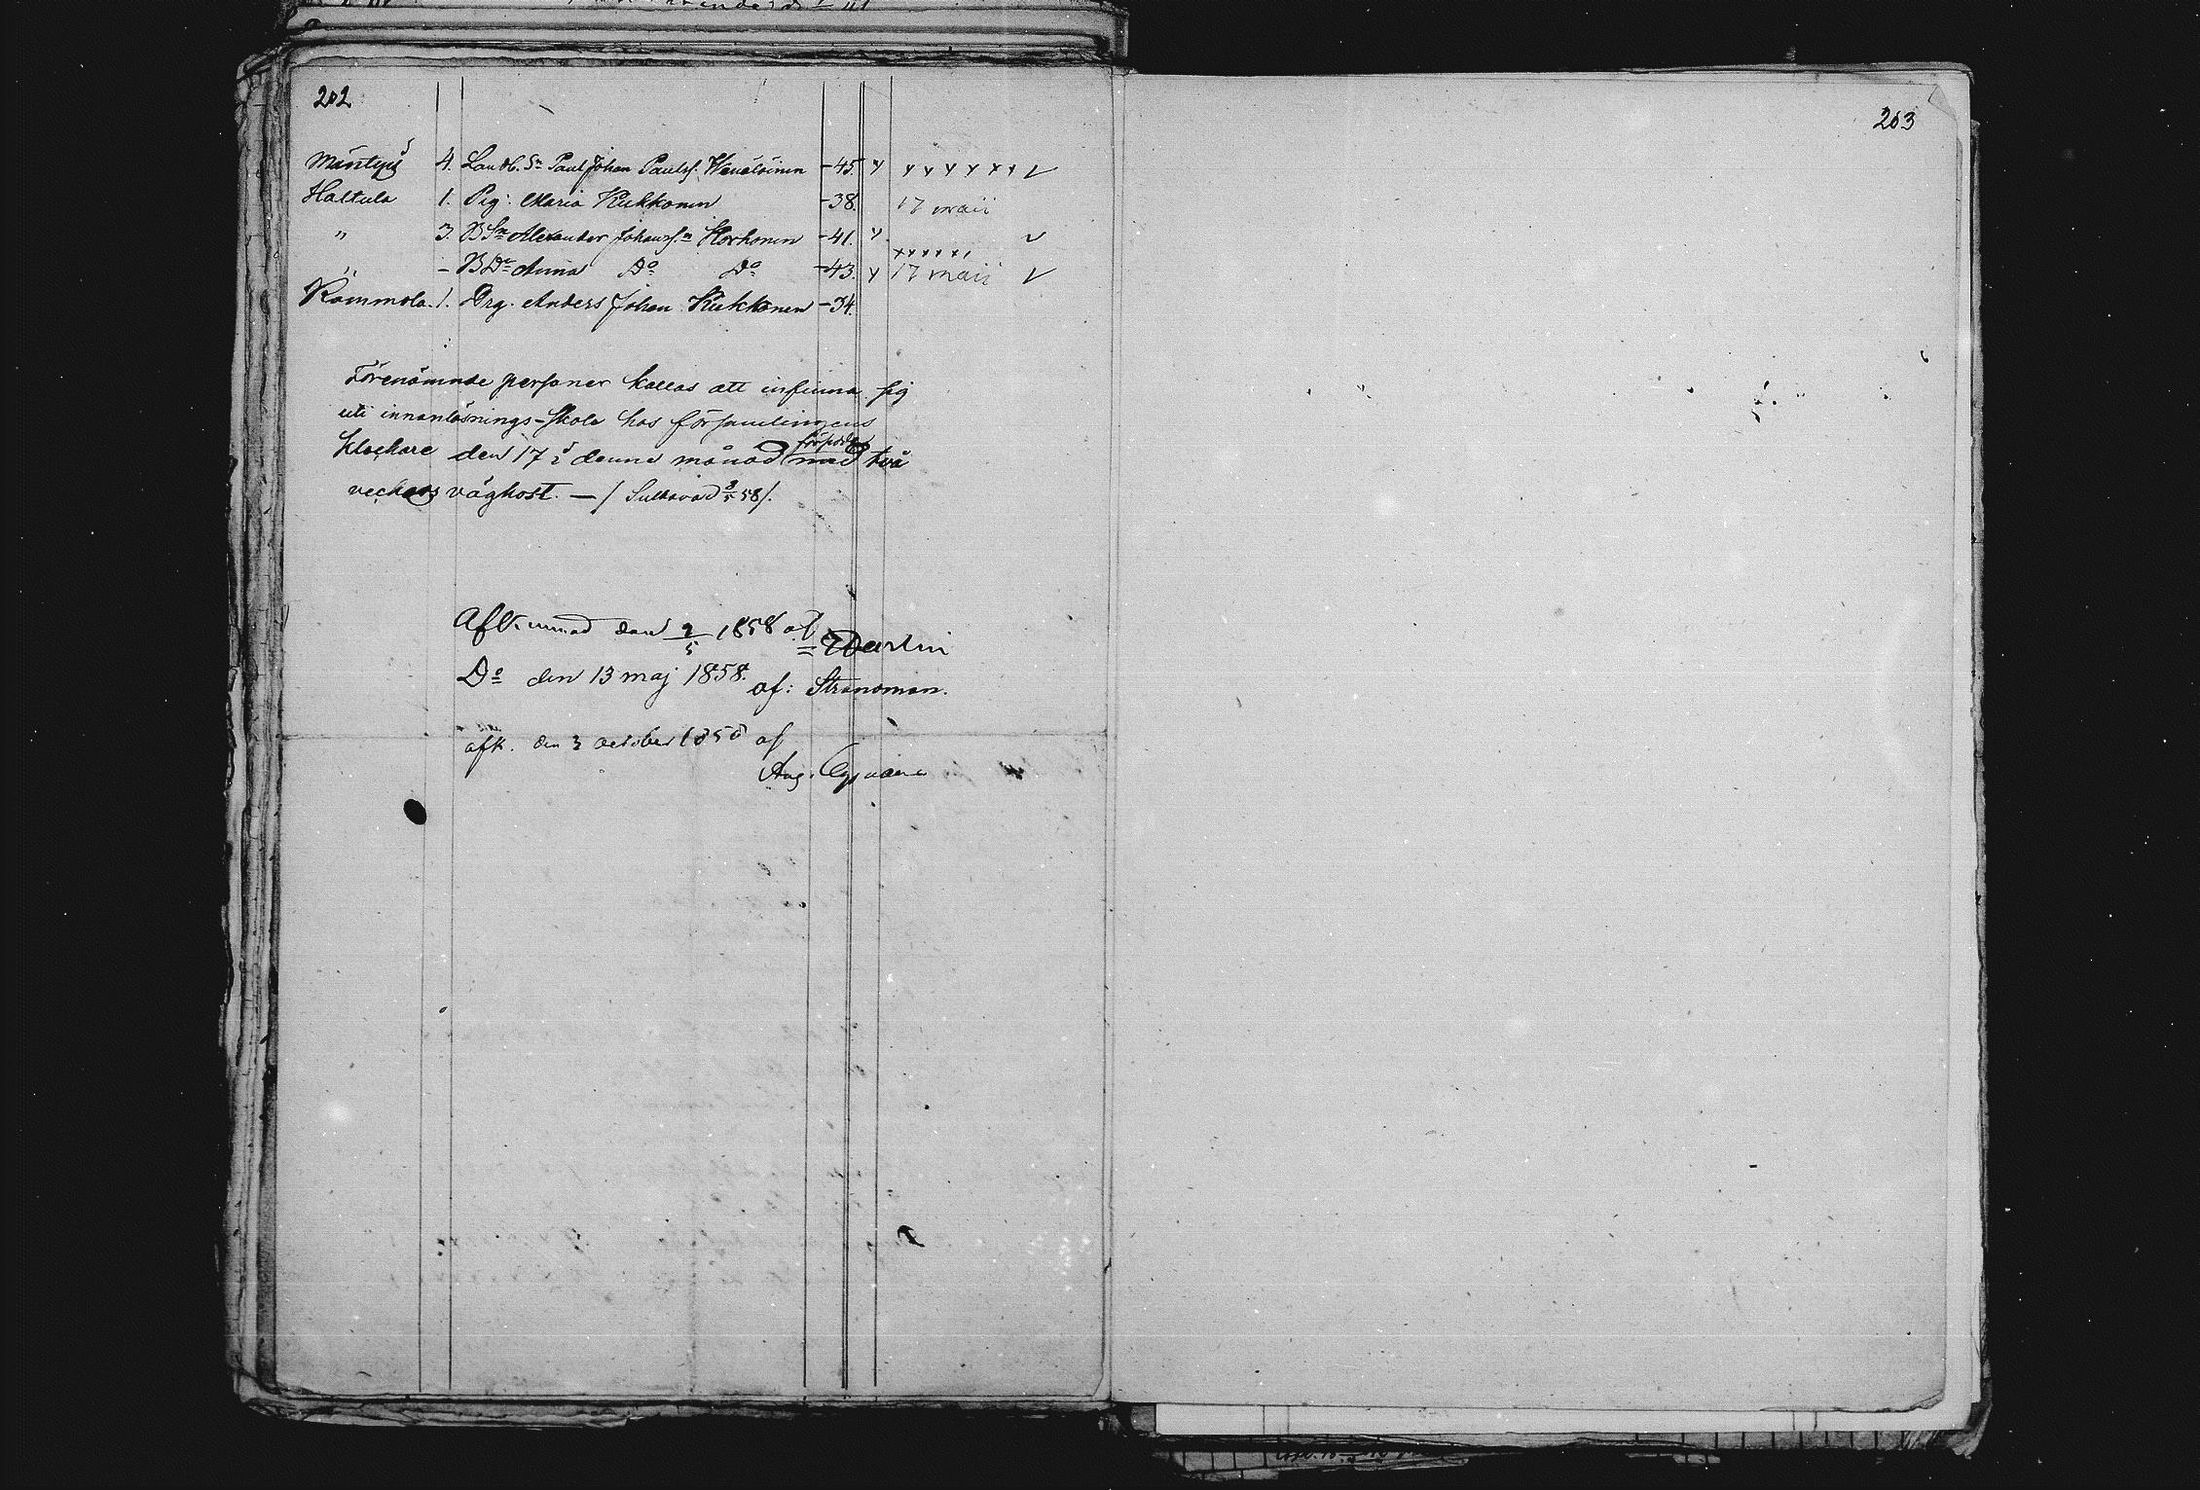 202
Mäntyis 4. Landb. Sn Paul Johan Paulsf. Wenäläinen -45. x x x x x x x
Haltula 1. Pig: Maria Kukkonen -38. 17 maii
" 3. B Sn Alexander Johansf.n Korhonen -41. x
x x x x x x
" - B Dr Anna Do Do -43. x 17 maii
Rämmola. 1. Drg. Anders Johan Kukkonen -34.
Förenämnde personer kallas att infinna sig
uti innanläsnings-skola hos församlingens
klockare den 17 denne månad två
veckors vägkost. — / Sulkava d 8/5 58/.
den 9/5 1858 af
Do den 13 maj 1858. af: Strandman.
afk. den 3 october 1858 af
Aug.
203